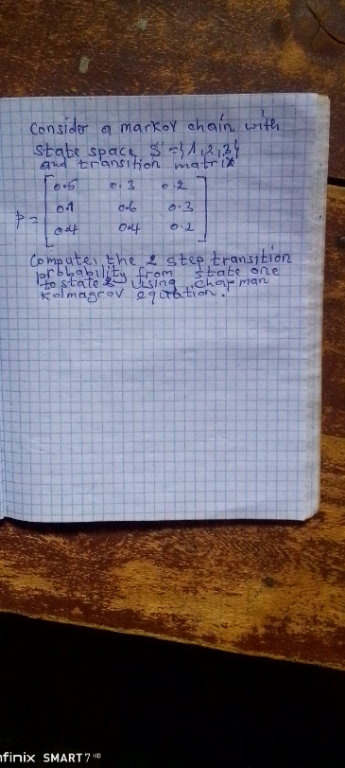 Consider a markov chain with
state space S = {1,2,3}
and transition matrix
P = [0.5 0.3 0.2
0.1 0.6 0.3
0.4 0.4 0.2]
Compute, the 2 step transition
probability from state one
to state 2 using chapman
Kolmagrov equation.
nfinix SMART 7 HD